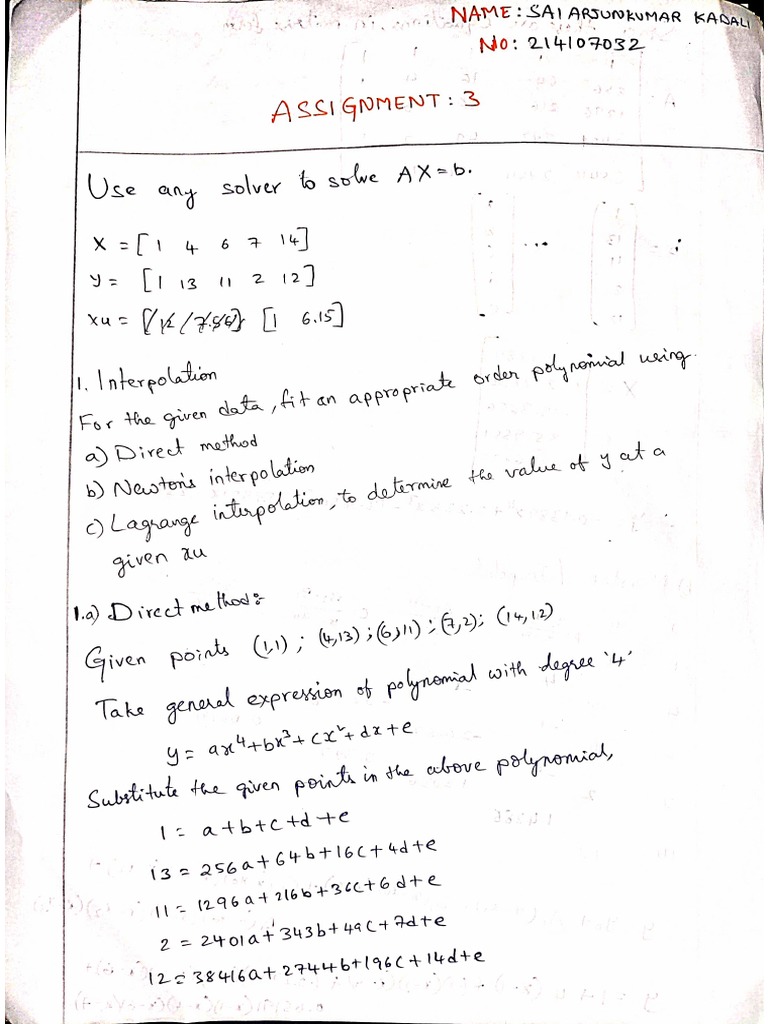 NAME: SAI ARJUNKUMAR KADALI
NO: 214107032
ASSIGNMENT: 3
Use any solver to solve AX=b.
X = [1 4 6 7 14]
y = [1 13 11 2 12]
xu = [1 6.15]
1. Interpolation
For the given data, fit an appropriate order polynomial using
a) Direct method
b) Newton's interpolation
c) Lagrange interpolation, to determine the value of y at a
given xu
1.a) Direct method:
Given points (1,1); (4,13); (6,11); (7,2); (14,12)
Take general expression of polynomial with degree '4'
y = ax⁴+bx³+cx²+dx+e
Substitute the given points in the above polynomial,
1 = a+b+c+d+e
13 = 256a+64b+16c+4d+e
11 = 1296a+216b+36c+6d+e
2 = 2401a+343b+49c+7d+e
12 = 38416a+2744b+196c+14d+e